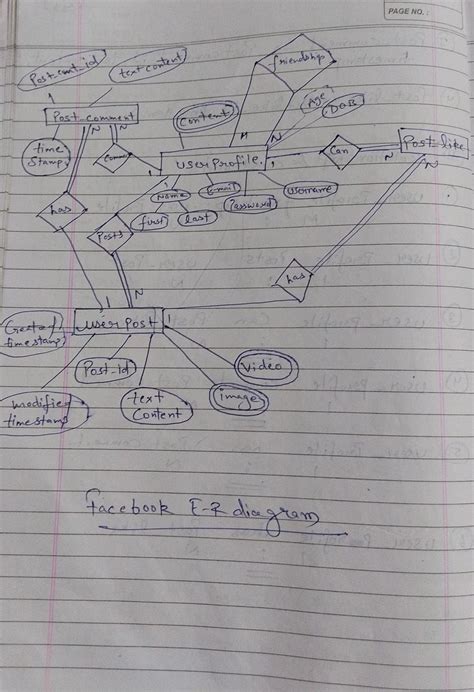 PAGE NO. :
Post_cmt_id
text content
friendship
Post-comment
time
stamp
Content
Age
DOB
N
N
M
N
Comme
1
userprofile
1
Can
N
Post-like
N
has
Name
Email
username
Password
first
last
Posts
has
1
N
1
Created
timestamp
user post
Post-id
Video
modified
timestamp
text
Content
image
facebook E-R diagram